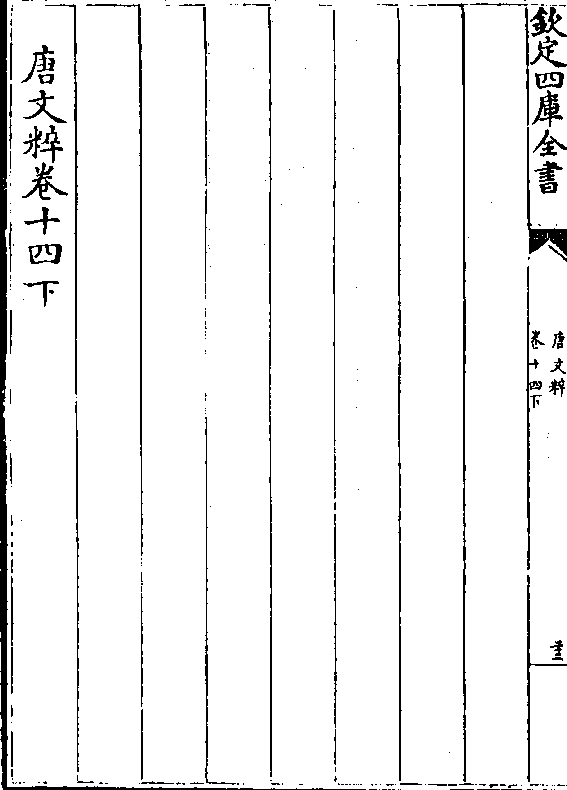 欽定四庫全書
唐文粹
卷十四下
唐文粹卷十四下